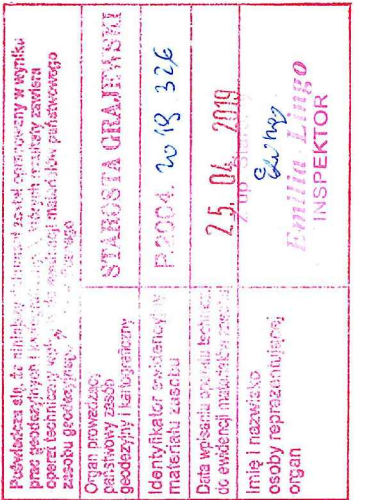 Poświadcza się, że niniejszy dokument został opracowany w wyniku
prac geodezyjnych i których rezultaty zawiera
operat techniczny do ewidencji materiałów państwowego
zasobu geodezyjnego
Organ prowadzący
państwowy zasób
geodezyjny i kartograficzny
STAROSTA GRAJEWSKI
Identyfikator ewidencyjny
materiału zasobu
P.2004. 2019 326
Data wpisania operatu technicz.
do ewidencji materiałów zasobu
25. 04. 2019
Imię i nazwisko
osoby reprezentującej
organ
z up. Starosty
Emilia Lingo
INSPEKTOR